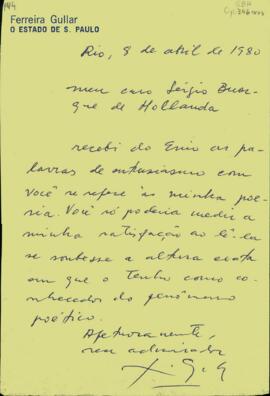 144
Ferreira Gullar
O ESTADO DE S. PAULO
Rio, 8 de abril de 1980
meu caro Sérgio Buar-
que de Hollanda
recebi do Enio as pa-
lavras de entusiasmo com
Você se refere às minha poe-
sia. Você só poderia medir a
minha satisfação ao lê-la
se soubesse a altura exata
em que o tenho como co-
nhecedor do fenômeno
poético.
Afetuosamente,
seu admirador